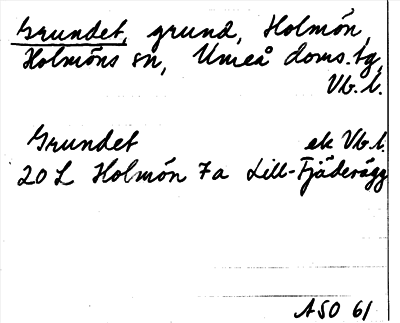 Grundet, grund, Holmön,
Holmöns sn, Umeå doms. tg,
Vb. l.
Grundet ek Vb. l.
20 L Holmön 7a Lill-Fjäderägg
ASO 61